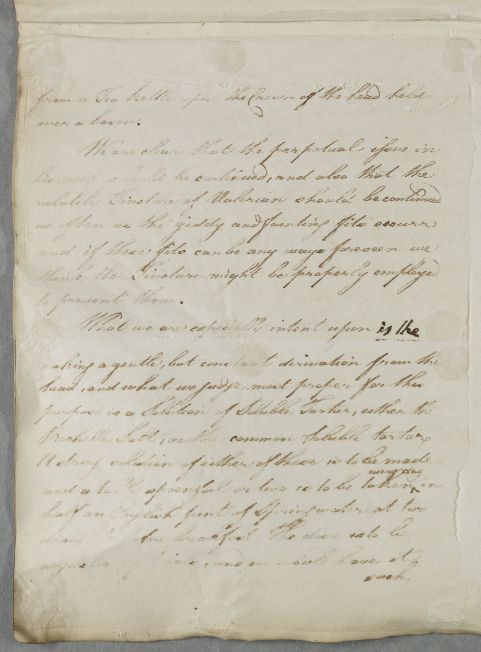 from a Tea kettle upon the Crown of the head held
over a bason.
We are clear that the perpetual issue in
should be continued, and also that the
volatile Tincture of Valerian should be continued
as often as the giddy and fainting fits occurr
and if these fits can be any ways foreseen we
think the Tincture might be properly employed
to prevent them.
What we are especially intent upon is the
making a gentle, but constant derivation from the
head, and what we judge most proper for this
purpose is a Solution of Soluble Tartar, either the
Rochelle Salt, or the common Soluble tartar
A strong solution of either of these is to be made
every day
and a table spoonfull or two is to be taken in
half an English pint of Spring water at two
before breakfast The dose is to be
and we would have it
such